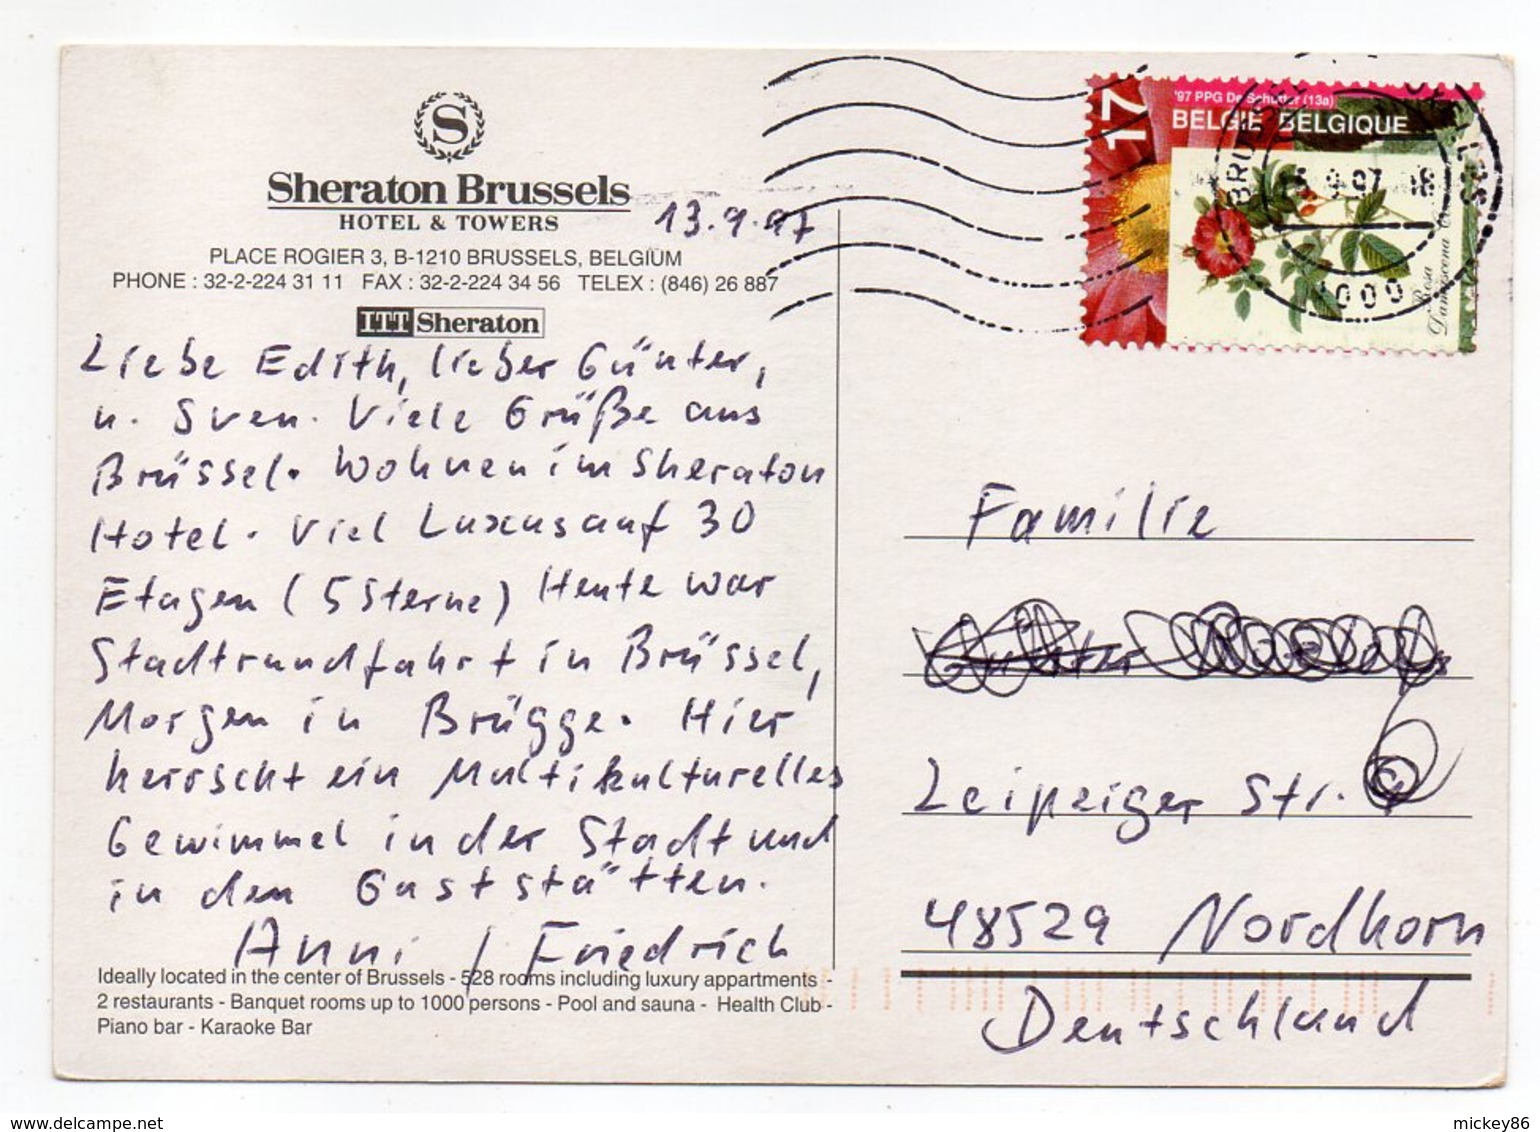 S
Sheraton Brussels
HOTEL & TOWERS
PLACE ROGIER 3, B-1210 BRUSSELS, BELGIUM
PHONE : 32-2-224 31 11 FAX : 32-2-224 34 56 TELEX : (846) 26 887
ITT Sheraton
13.9.97
Liebe Edith, lieber Günter,
u. Sven. Viele Grüße aus
Brüssel. Wohnen im Sheraton
Hotel. Viel Luxus auf 30
Etagen (5 Sterne) Heute war
Stadtrundfahrt in Brüssel,
Morgen in Brügge. Hier
herrscht ein Multikulturelles
Gewimmel in der Stadt und
in den Gaststätten.
Anni / Friedrich
Ideally located in the center of Brussels - 528 rooms including luxury appartments -
2 restaurants - Banquet rooms up to 1000 persons - Pool and sauna - Health Club -
Piano bar - Karaoke Bar
17
'97 PPG De Schutter (13a)
BELGIË BELGIQUE
Rosa
Damascena
1000
Familie
Leipziger Str. 6
48529 Nordhorn
Deutschland
delcampe.net
mickey86